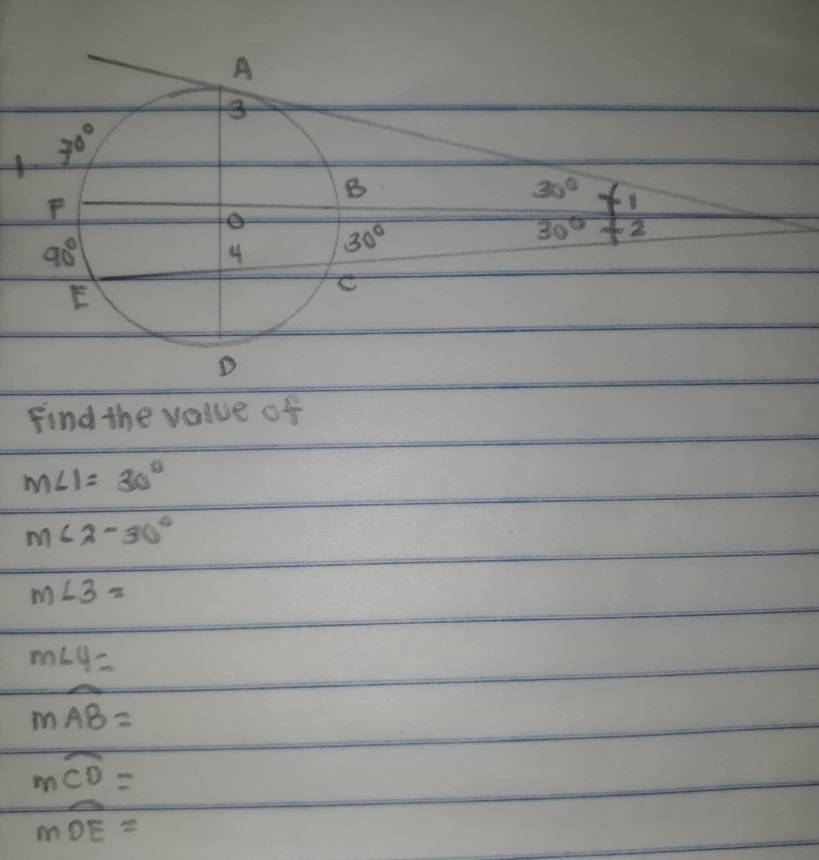 A
3
1. 70°
F
B
30° 1
O
30°
30° 2
90°
4
E
C
D
Find the value of
m∠1= 30°
m∠2-30°
m∠3=
m∠4=
mA͡B=
mC͡D=
mD͡E=